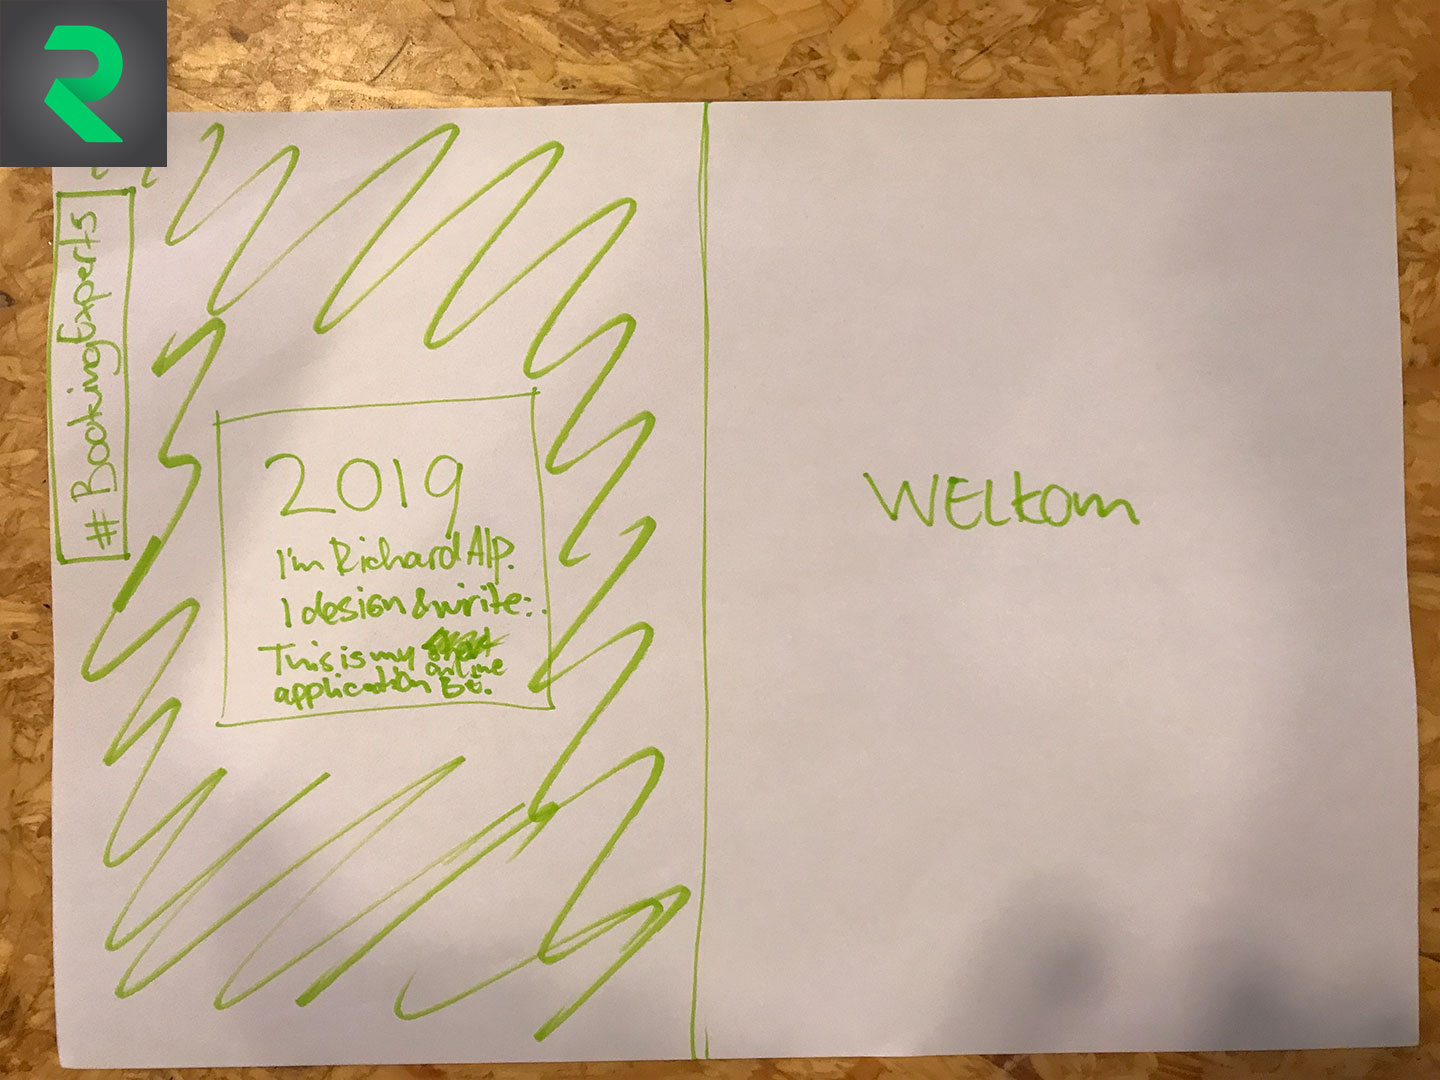 #BookingExperts
2019
I'm Richard Alp.
I design & write:.
This is my
online
application
WELKOM